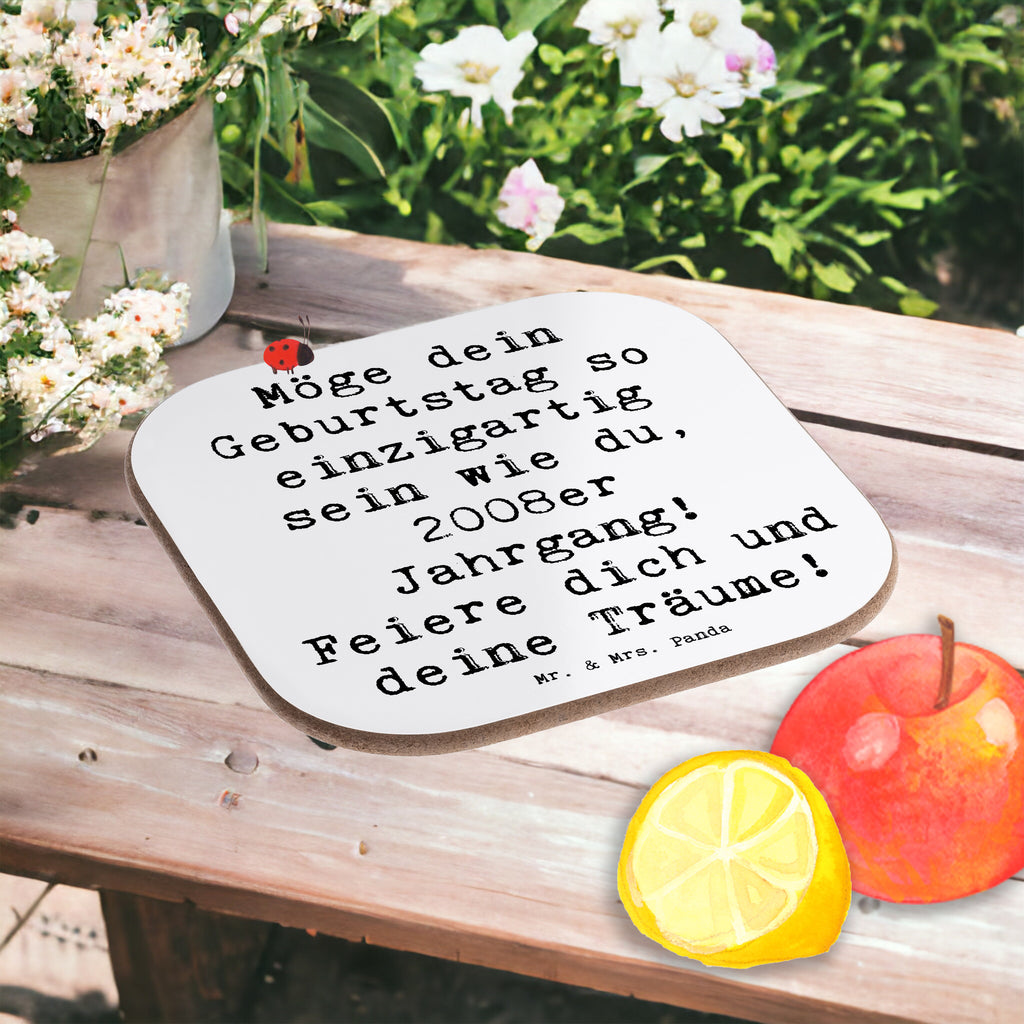 Möge dein
Geburtstag so
einzigartig
sein wie du,
2008er
Jahrgang!
Feiere dich und
deine Träume!
Mr. & Mrs. Panda